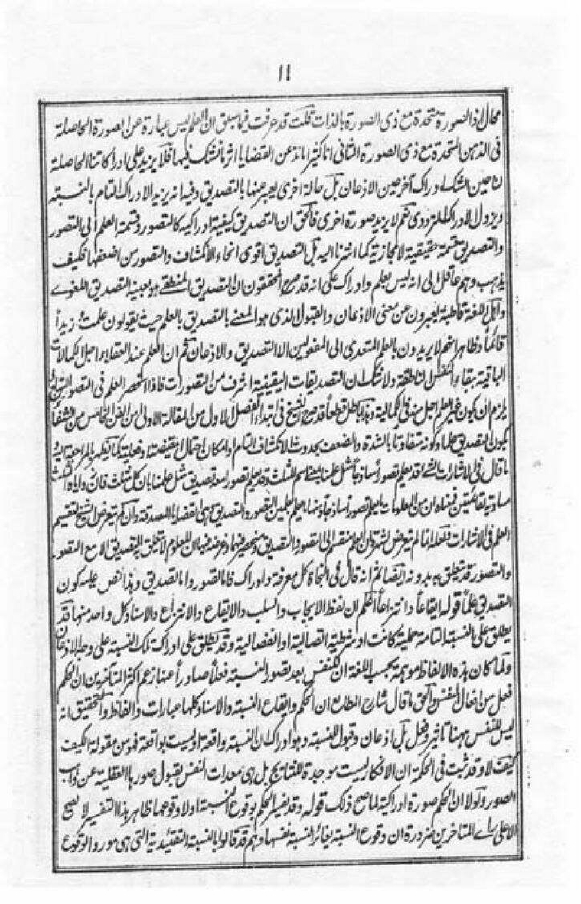 ١١
محال اذ الصورة متحدة مع ذى الصورة بالذات قلت قد عرفت فيما سبق ان العلم ليس عبارة عن الصورة الحاصلة
فى الذهن المتحدة مع ذى الصورة الثانى انا كثيرا ما ندعن القضايا اثر ما نشك فيها فلا يزيد على ادراكاتنا الحاصلة
حين الشك ادراك آخر حين الاذعان بل حالة اخرى يعبر عنها بالتصديق وفيه انه يزيد الادراك التام بالنسبة
ويزول الادراك التزودى نعم لا يزيد صورة اخرى فالحق ان التصديق كيفية ادراكية كالتصور وقسمة العلم الى التصور
والتصديق قسمة حقيقية لا مجازية كما اشرنا اليه بل التصديق اقوى انحاء الانكشاف والتصور من اضعفها فكيف
يذهب وهم عاقل الى انه ليس بعلم وادراك على انه قد صرح المحققون ان التصديق المنطقى هو بعينه التصديق اللغوى
واهل اللغة قاطبة يعبرون عن معنى الاذعان والقبول الذى هو المعنى بالتصديق بالعلم حيث يقولون علمت زيدا
قائما وظاهر انهم لا يريدون بالعلم المتعدى الى المفعولين الا التصديق والاذعان ثم ان العلم عند العقلاء اجل الكمالات
الباقية ببقاء النفس الناطقة ولا شك ان التصديقات اليقينية اشرف من التصورات فاذا انحصر العلم فى التصور
يلزم ان يكون غير العلم اجل منه فى الكمالية وهذا باطل قطعا قد صرح الشيخ فى ابتداء الفصل الاول من المقالة الاولى من الفن الخامس من الشفا
بكون التصديق علما وكونه متفاوتا بالشدة والضعف بحدوث الانكشاف التام وامكان احتمال نقيضه
ما قال فى الاشارات الشئ قد يعلم تصورا ساذجا مثل علمنا بمعنى اسم المثلث وقد يعلم تصورا معه تصديق مثل علمنا بان كل مثلث فان زواياه
مساوية لقائمتين
العلم فى الاشارات
والتصور قد يتعلق به بدونه ايضا ثم انه قال فى النجاة كل معرفة وادراك فاما تصور واما تصديق وهذا نص على كون
التصديق علما قوله ايقاعا وانتزاعا اعلم ان لفظ الايجاب والسلب والايقاع والانتزاع والاسناد كل واحد منها قد
يطلق على النسبة التامة حملية كانت او شرطية اتصالية او انفصالية وقد يطلق على ادراك تلك النسبة على وجه الاذعان
ولما كان هذه الالفاظ موهمة بحسب اللغة ان للنفس بعد تصور النسبة فعلا صادرا عنها زعم اكثر المتأخرين ان الحكم
فعل من افعال النفس والحق ما قال شارح المطالع ان الحكم وايقاع النسبة والاسناد كلها عبارات والفاظ والتحقيق انه
ليس للنفس ههنا تاثير وفعل بل اذعان وقبول للنسبة وهو ادراك ان النسبة واقعة او ليست بواقعة فهو من مقولة الكيف
كيف لا وقد ثبت فى الحكمة ان الافكار ليست موجدة للنتائج بل هى معدات النفس لقبول صورها العقلية عن واهب
الصور ولولا ان الحكم صورة ادراكية لما صح ذلك قوله وقد يفسر الحكم بوقوع النسبة او لا وقوعها ظاهر هذا التفسير لا يصح
الا على راى المتاخرين ضرورة ان وقوع النسبة يغائر النسبة نفسها وهم قد قالوا بالنسبة التقييدية التى هى مورد الوقوع